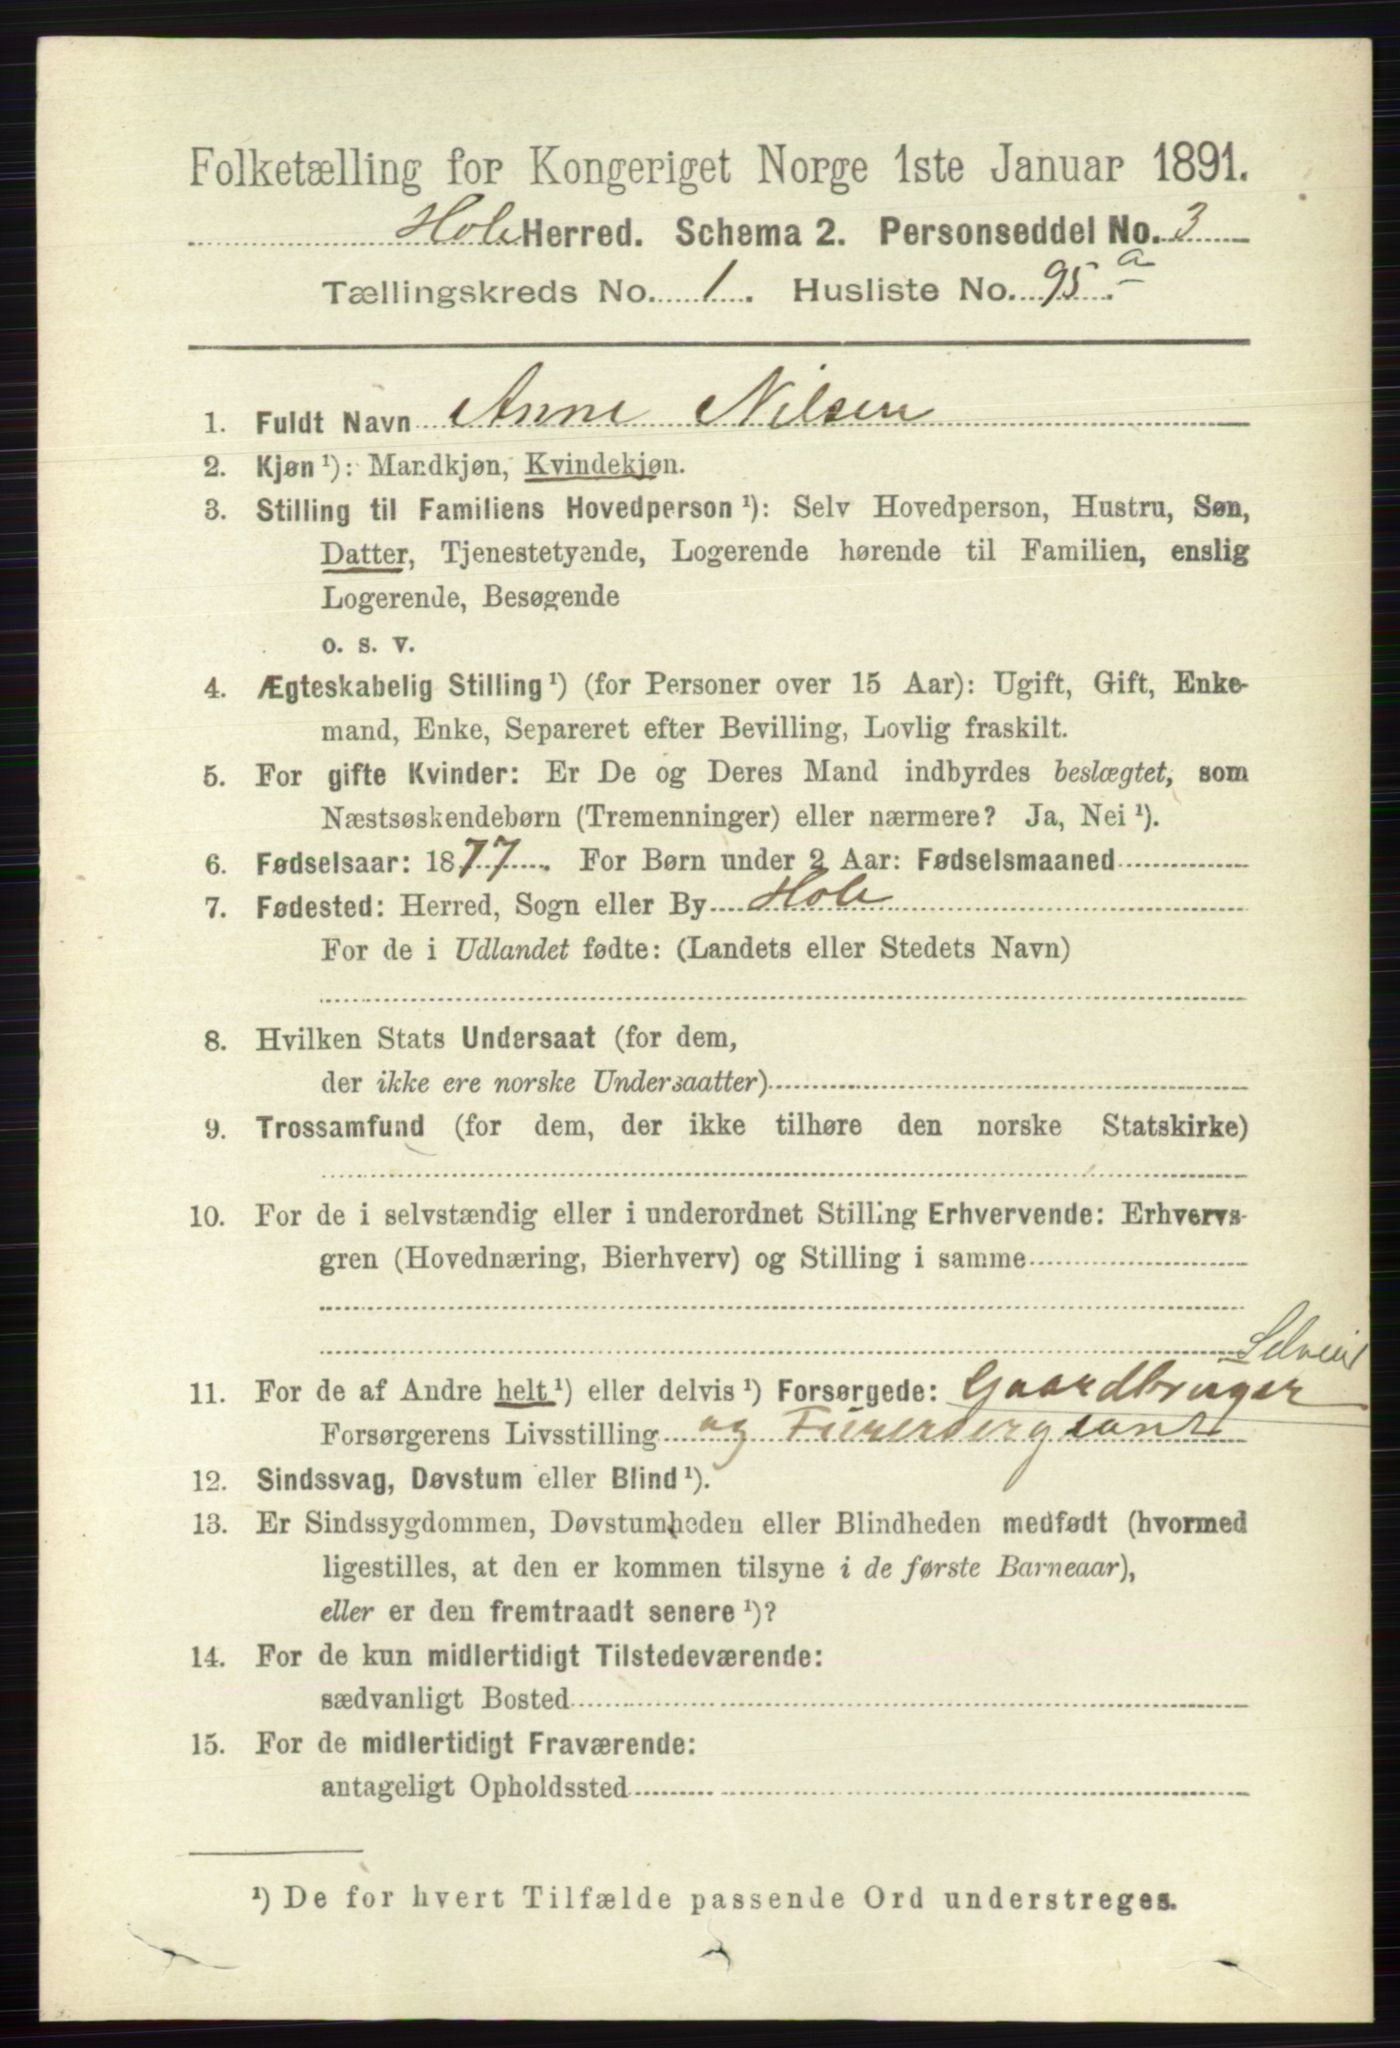 Folketælling for Kongeriget Norge 1ste Januar 1891.
Hole Herred. Schema 2. Personseddel No. 3
Tællingskreds No. 1. Husliste No. 95 a
1. Fuldt Navn Anne Nilsen
2. Kjøn ¹): Mandkjøn, Kvindekjøn.
3. Stilling til Familiens Hovedperson ¹): Selv Hovedperson, Hustru, Søn,
Datter, Tjenestetyende, Logerende hørende til Familien, enslig
Logerende, Besøgende
o. s. v.
4. Ægteskabelig Stilling ¹) (for Personer over 15 Aar): Ugift, Gift, Enke-
mand, Enke, Separeret efter Bevilling, Lovlig fraskilt.
5. For gifte Kvinder: Er De og Deres Mand indbyrdes beslægtet, som
Næstsøskendebørn (Tremenninger) eller nærmere? Ja, Nei ¹).
6. Fødselsaar: 1877. For Børn under 2 Aar: Fødselsmaaned
7. Fødested: Herred, Sogn eller By Hole
For de i Udlandet fødte: (Landets eller Stedets Navn)
8. Hvilken Stats Undersaat (for dem,
der ikke ere norske Undersaatter)
9. Trossamfund (for dem, der ikke tilhøre den norske Statskirke)
10. For de i selvstændig eller i underordnet Stilling Erhvervende: Erhvervs-
gren (Hovednæring, Bierhverv) og Stilling i samme
Selveier
11. For de af Andre helt ¹) eller delvis ¹) Forsørgede: Gaardbruger
Forsørgerens Livsstilling og
12. Sindssvag, Døvstum eller Blind ¹).
13. Er Sindssygdommen, Døvstumheden eller Blindheden medfødt (hvormed
ligestilles, at den er kommen tilsyne i de første Barneaar),
eller er den fremtraadt senere ¹)?
14. For de kun midlertidigt Tilstedeværende:
sædvanligt Bosted
15. For de midlertidigt Fraværende:
antageligt Opholdssted
¹) De for hvert Tilfælde passende Ord understreges.